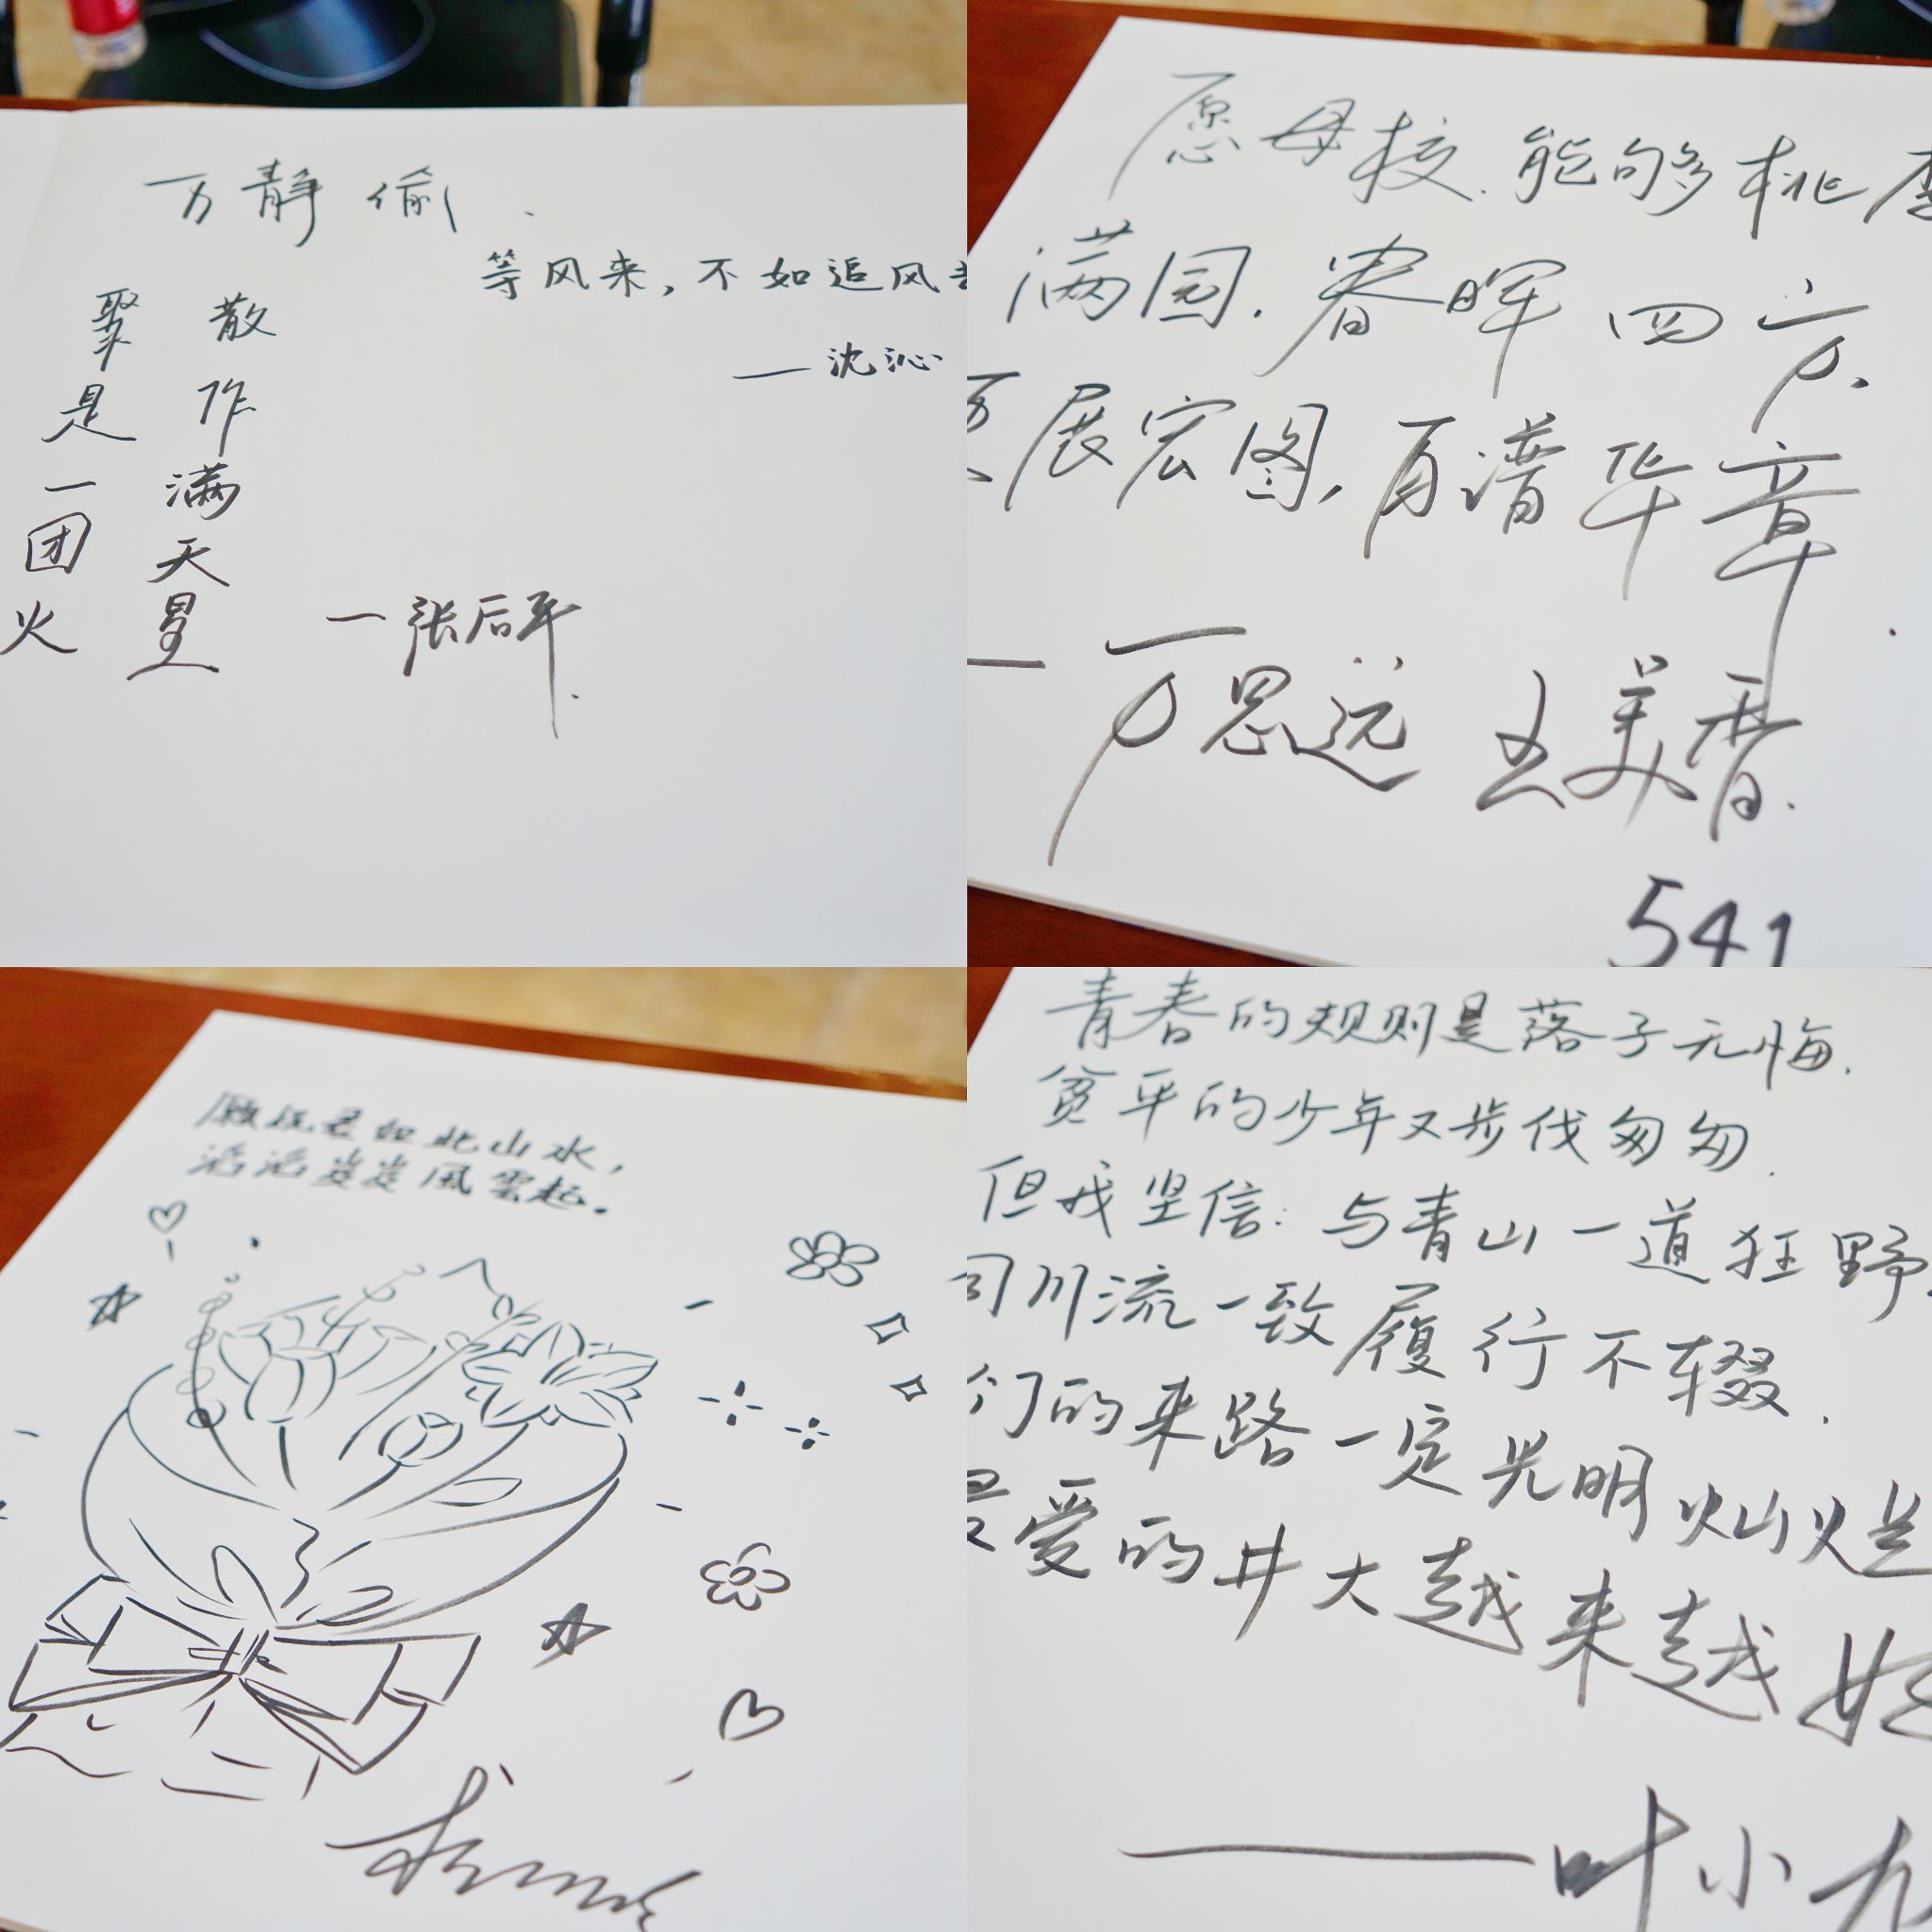 万静偷
等风来,不如追风去
——沈沁
聚是一团火
散作满天星
一张后平
愿母校.能够桃李
满园.春晖四方.
万展宏图,百谱华章
—万思远 王美香.
541
願祝君如此山水,
滔滔岌岌風雲起。
青春的规则是落子无悔.
贫乎的少年又步伐匆匆.
但我坚信:与青山一道狂野.
司川流一致履行不辍.
们的来路一定光明灿烂
最爱的井大越来越好
——叶小九